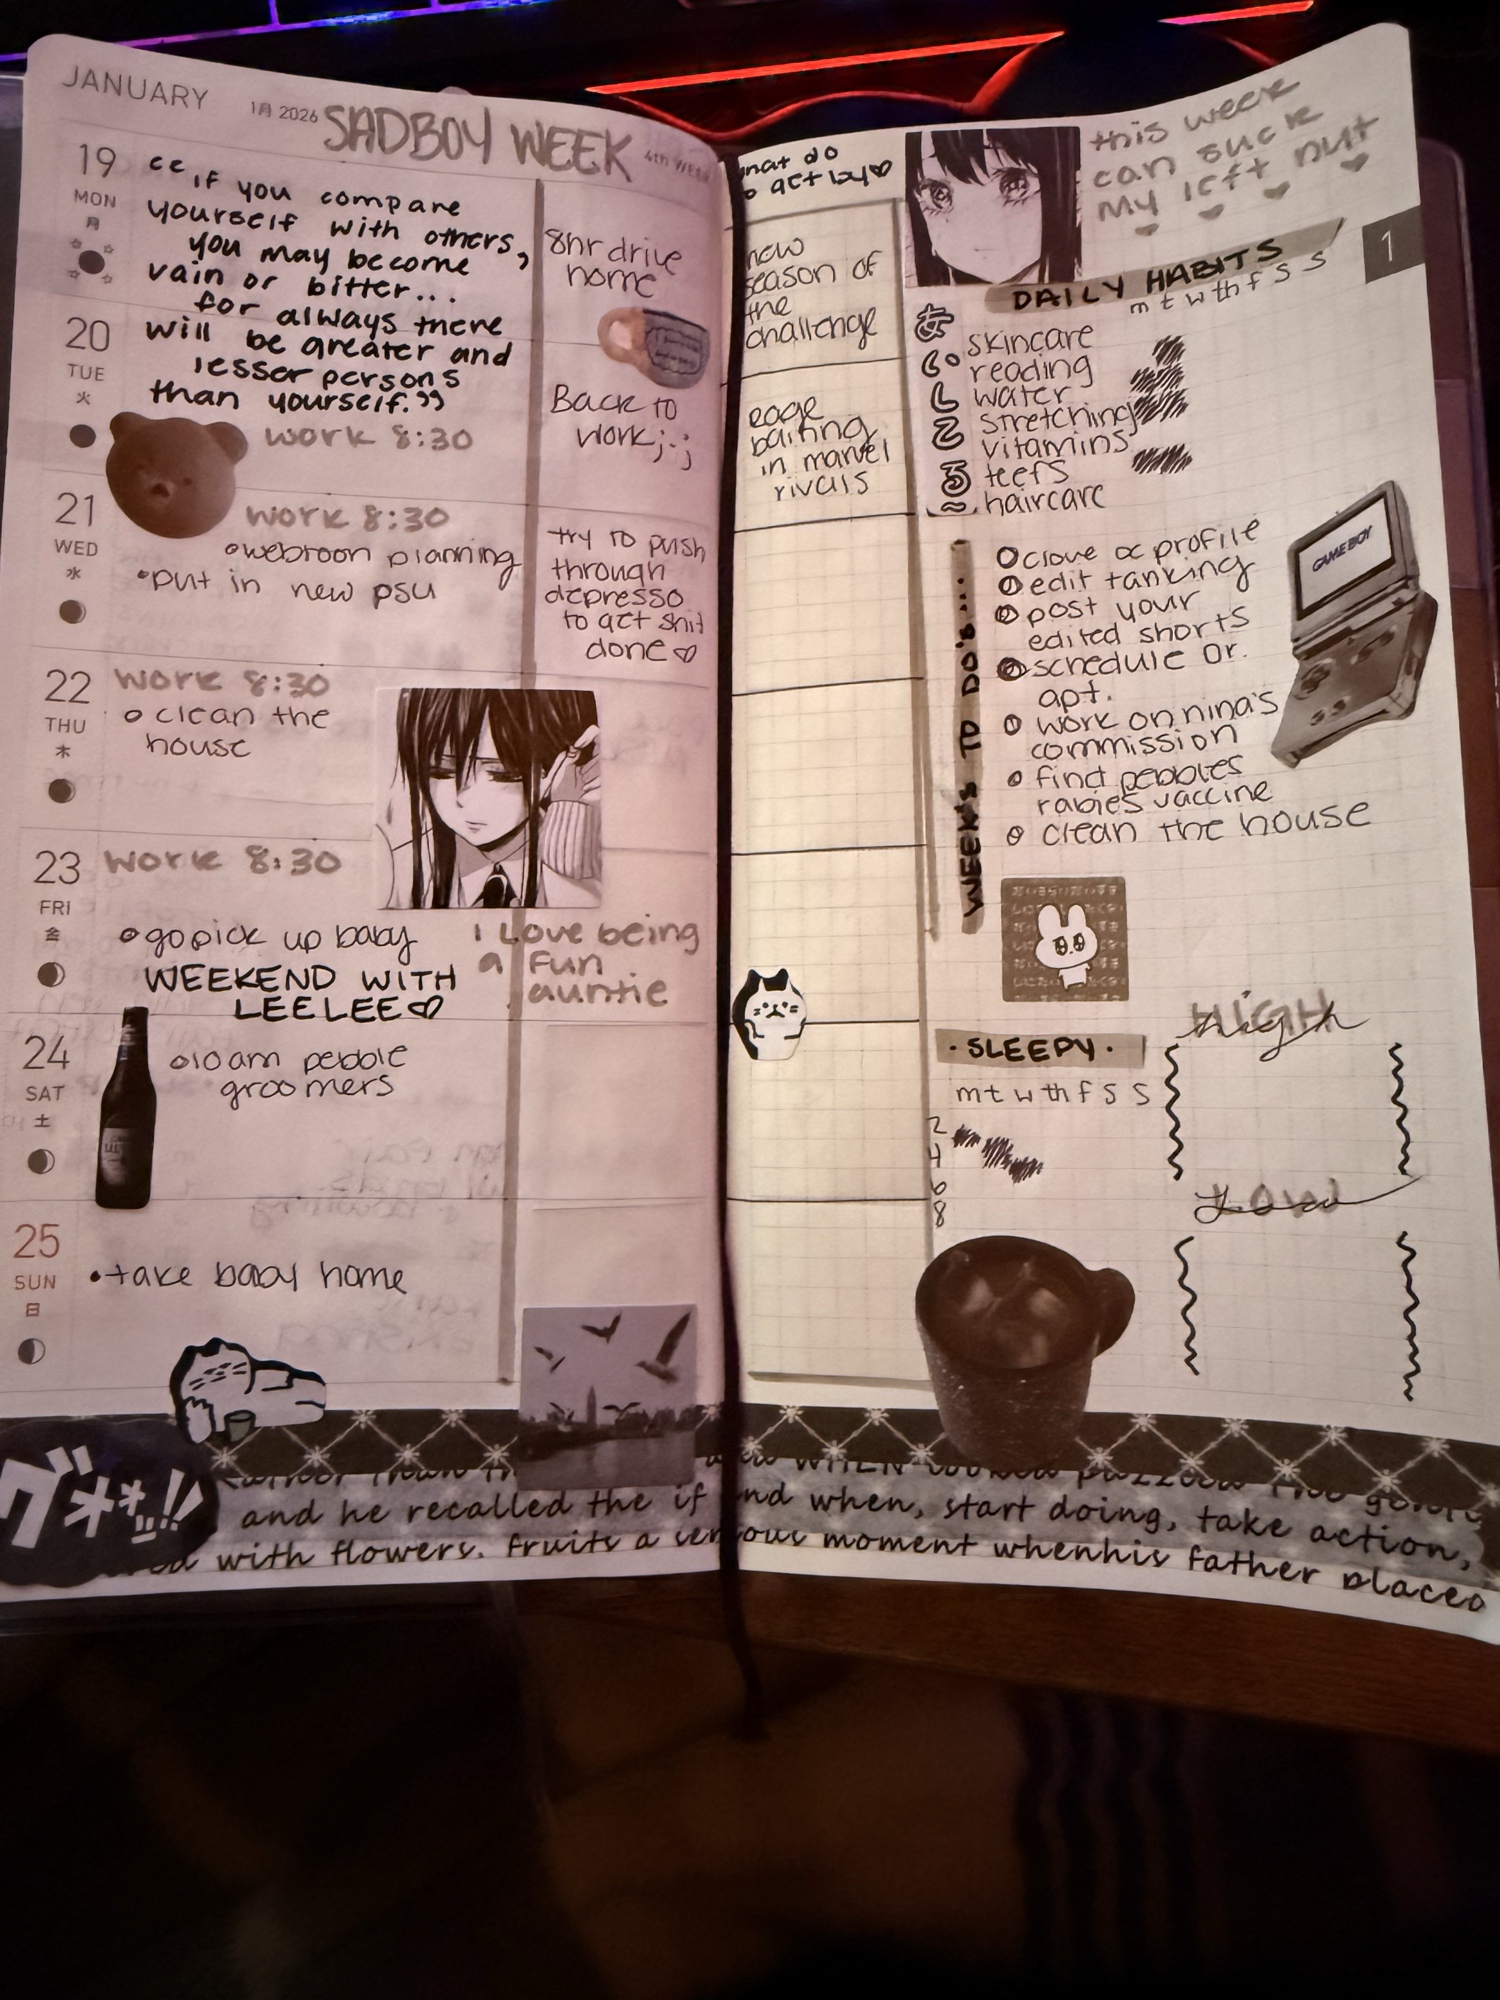 JANUARY
1月 2026
SADBOY WEEK
4th WEEK
19
MON
月
“if you compare
yourself with others,
you may become
vain or bitter...
for always there
will be greater and
lesser persons
than yourself.”
8hr drive
home
20
TUE
火
work 8:30
Back to
work ;-;
21
WED
水
work 8:30
webtoon planning
put in new psu
try to push
through
depresso
to get shit
done♡
22
THU
木
work 8:30
clean the
house
23
FRI
金
work 8:30
go pick up baby
WEEKEND WITH
LEELEE♡
I Love being
a fun
auntie
24
SAT
土
10am pebble
groomers
25
SUN
日
take baby home
グ**!!
what do
to get by♡
new
season of
the
challenge
rage
baiting
in marvel
rivals
this week
can suck
my left nut
1
DAILY HABITS
m t w th f s s
skincare
reading
water
stretching
vitamins
teefs
haircare
WEEK'S TO DO'S....
clove oc profile
edit tanking
post your
edited shorts
schedule Dr.
apt.
work on nina's
commission
find pebbles
rabies vaccine
clean the house
GAME BOY
·SLEEPY·
m t w th f s s
2
4
6
8
HIGH
high
LOW
Low
and he recalled the if and when, start doing, take action,
with flowers. Fruits a serious moment whenhis father placed